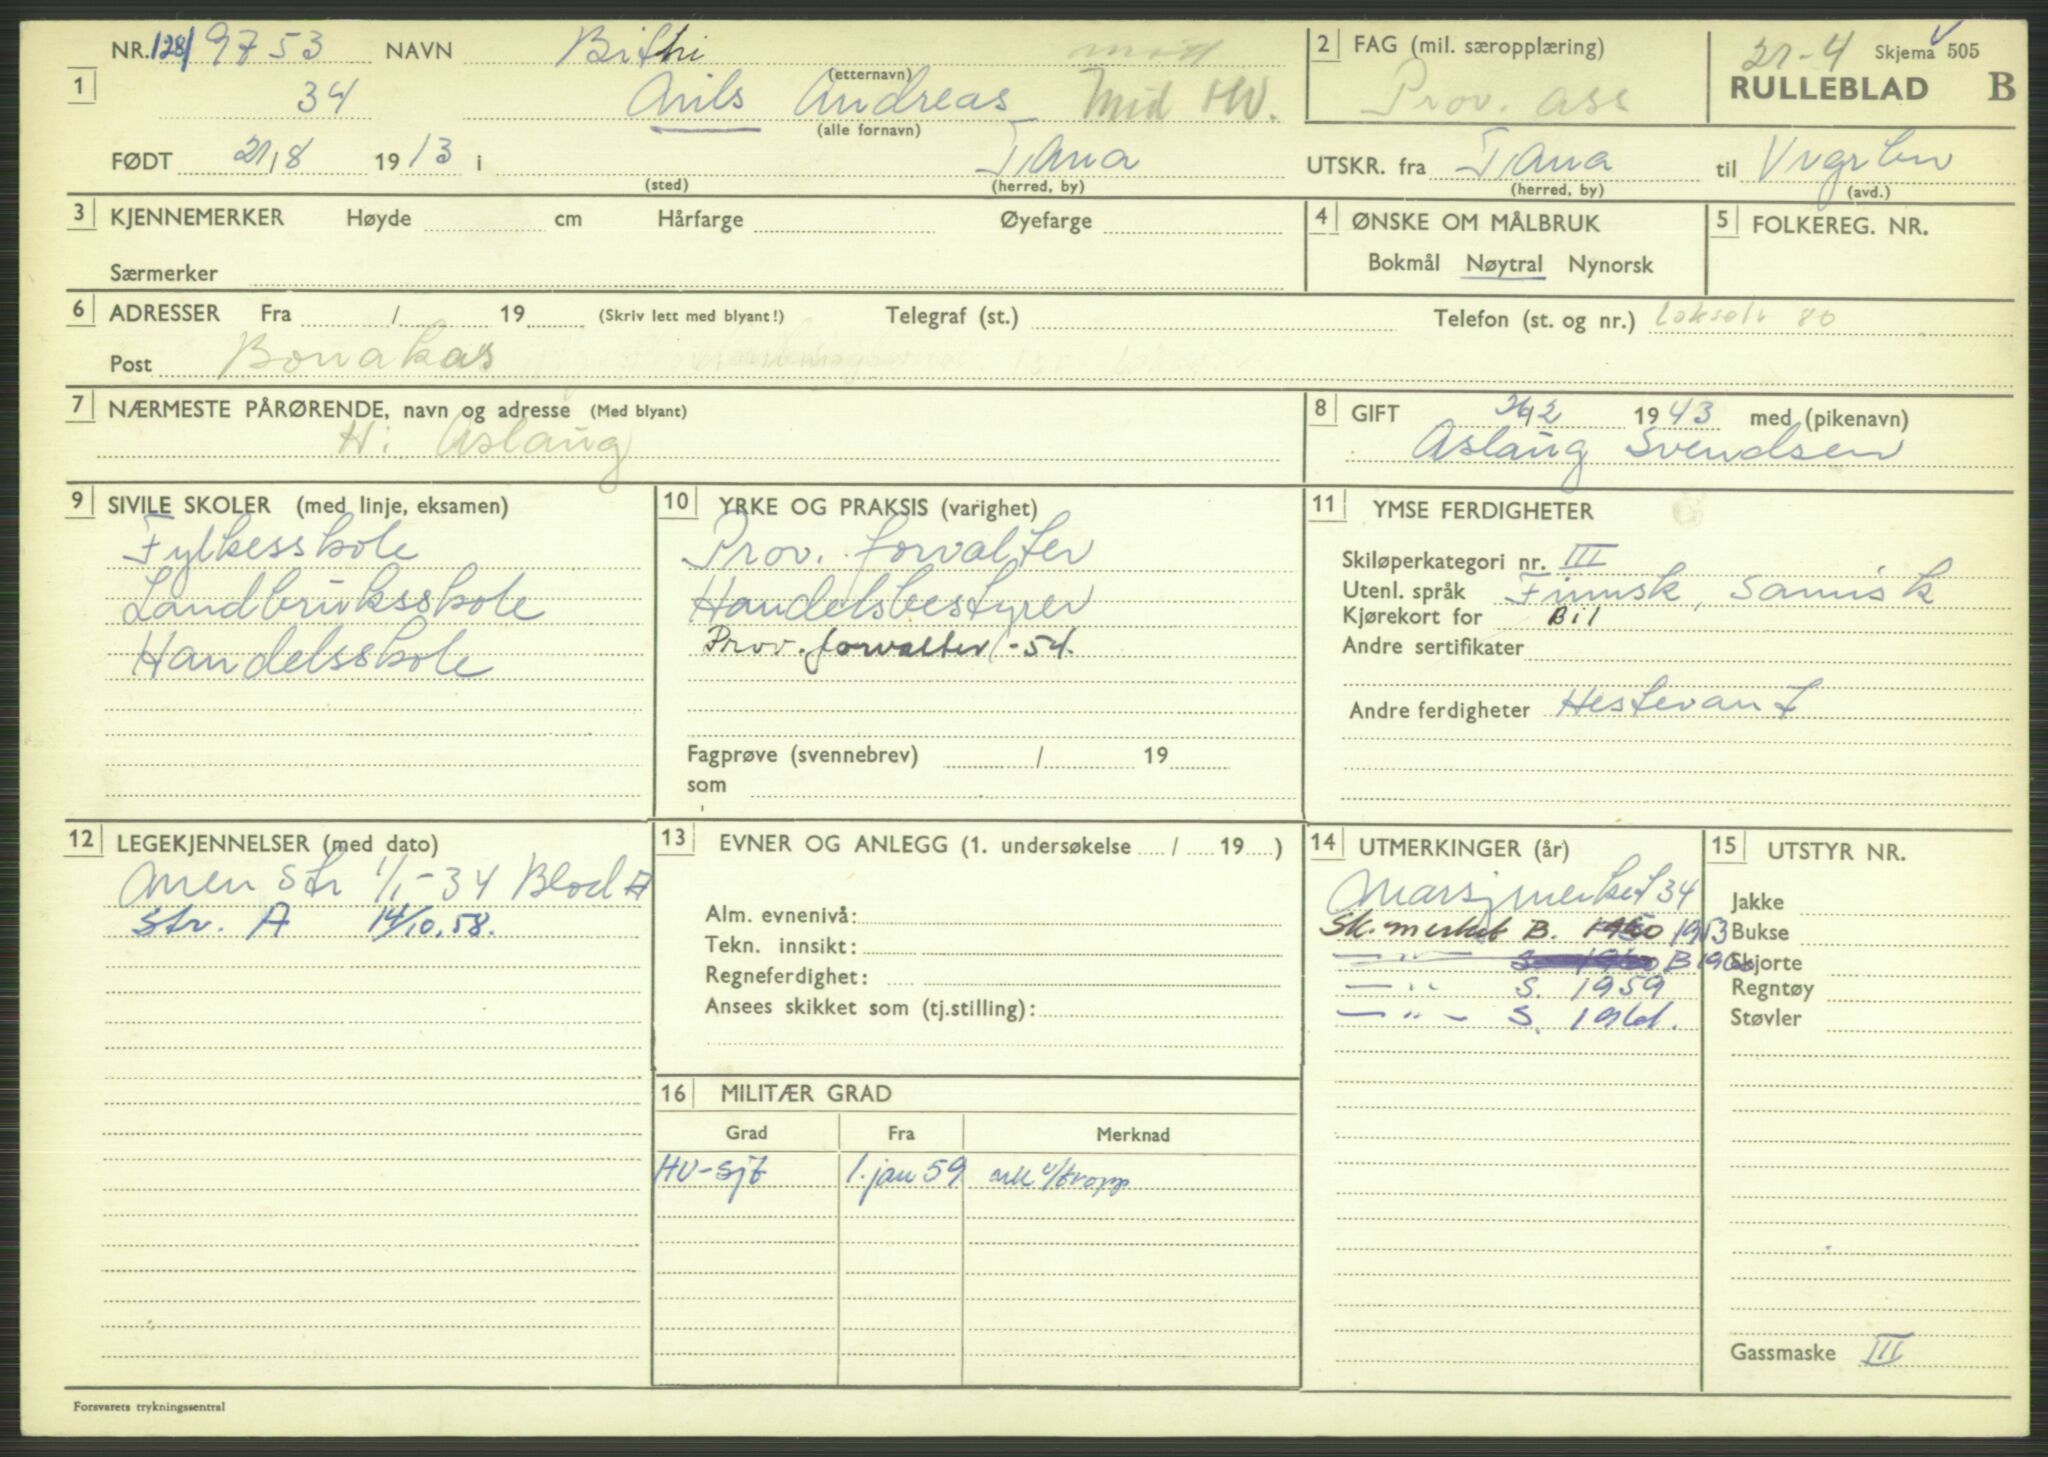 NR. 128/ 9753 NAVN Bithi
(etternavn)
2 FAG (mil. særopplæring)
21-4 Skjema 505
1 34 Nils Andreas Mid HV.
(alle fornavn)
Prov. ass
RULLEBLAD B
FØDT 21/8 1913 i Tana
(sted) (herred, by)
UTSKR. fra Tana til
(herred, by) (avd.)
3 KJENNEMERKER Høyde cm Hårfarge Øyefarge
Særmerker
4 ØNSKE OM MÅLBRUK
Bokmål Nøytral Nynorsk
5 FOLKEREG. NR.
6 ADRESSER Fra / 19 (Skriv lett med blyant!) Telegraf (st.) Telefon (st. og nr.) Lakselv 80
Post Bonakas
7 NÆRMESTE PÅRØRENDE, navn og adresse (Med blyant)
H: Aslaug
8 GIFT 26/2 1943 med (pikenavn)
Aslaug Svendsen
9 SIVILE SKOLER (med linje, eksamen)
Fylkesskole
Landbruksskole
Handelsskole
10 YRKE OG PRAKSIS (varighet)
Prov. forvalter
Handelsbestyrer
Prov. forvalter -54.
Fagprøve (svennebrev) / 19
som
11 YMSE FERDIGHETER
Skiløperkategori nr. III
Utenl. språk Finnsk, Samisk
Kjørekort for Bil
Andre sertifikater
Andre ferdigheter Hestevant
12 LEGEKJENNELSER (med dato)
str 1/1-34 Blod A
Str. A 14/10.58.
13 EVNER OG ANLEGG (1. undersøkelse / 19 )
Alm. evnenivå:
Tekn. innsikt:
Regneferdighet:
Ansees skikket som (tj.stilling):
14 UTMERKINGER (år)
Marsjmerket 34
Sk. merket B. 1953
—"— B 1960
—"— S. 1959
—"— S. 1961.
15 UTSTYR NR.
Jakke
Bukse
Skjorte
Regntøy
Støvler
Gassmaske III
16 MILITÆR GRAD
Grad Fra Merknad
HV-sjt 1. jan 59
Forsvarets trykningssentral